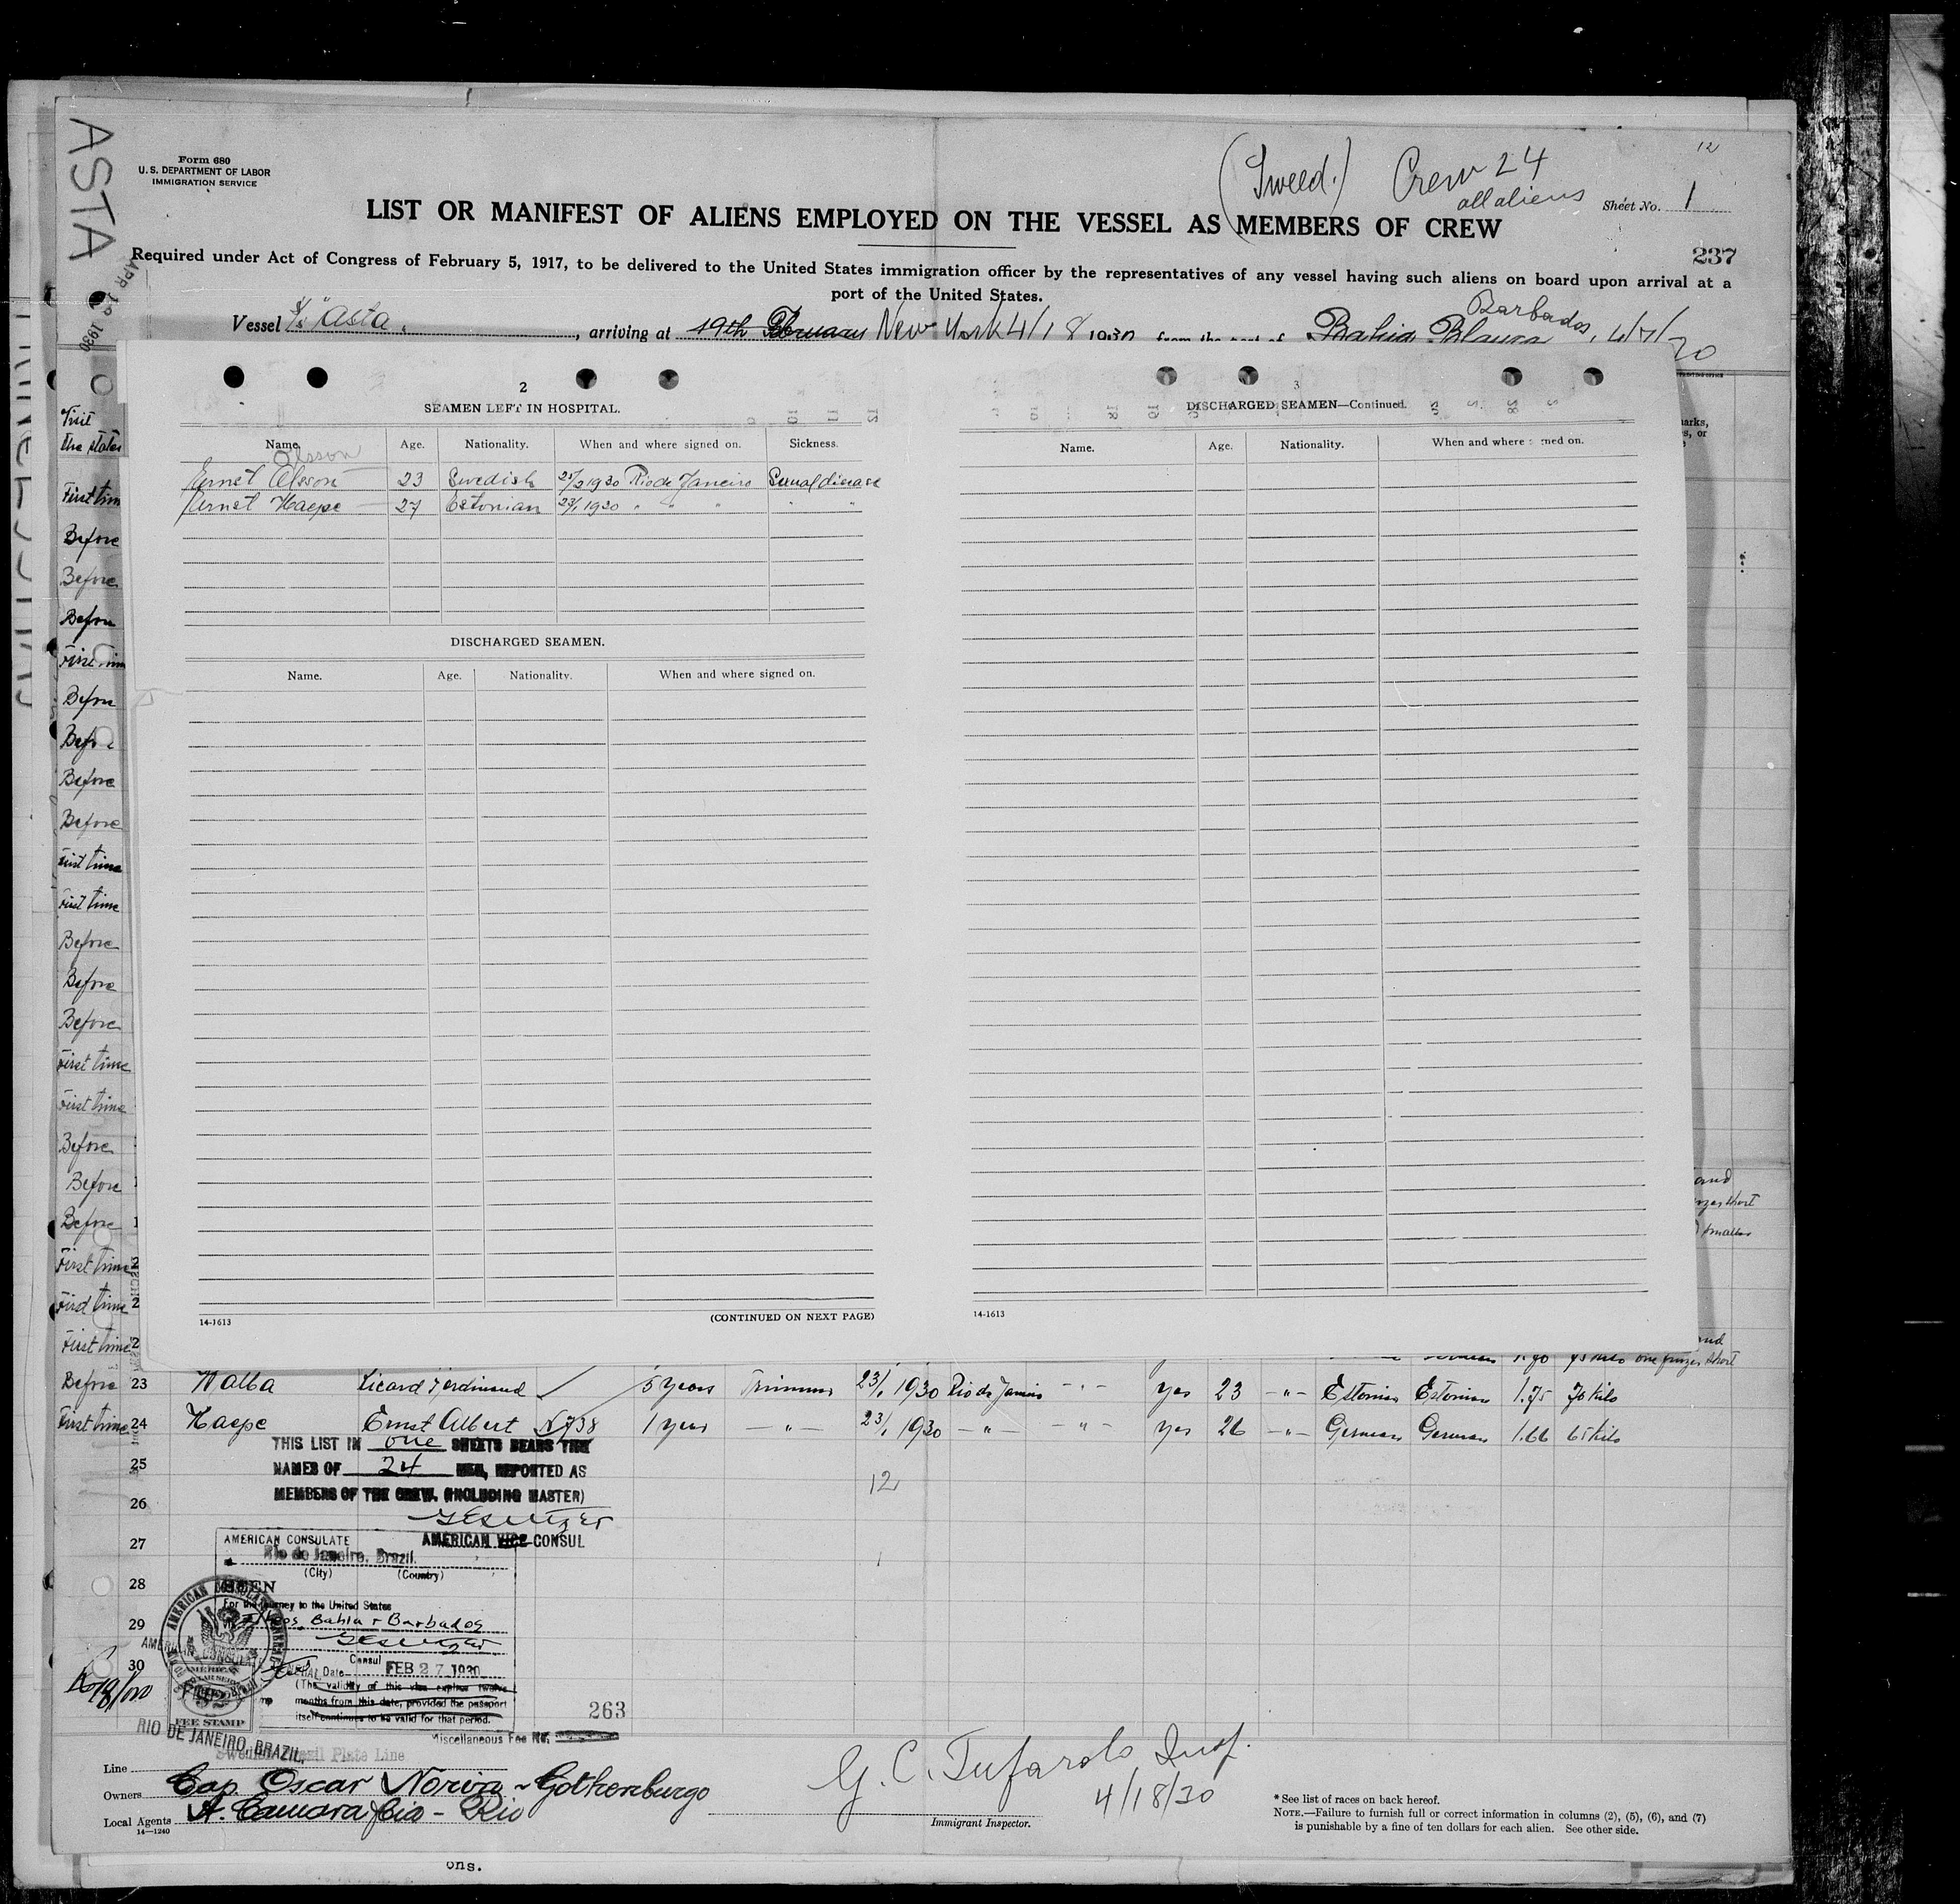 ASTA
APR 19 1930
Form 680
U. S. DEPARTMENT OF LABOR
IMMIGRATION SERVICE
(Swed.) Crew 24
all aliens
12
Sheet No. 1
LIST OR MANIFEST OF ALIENS EMPLOYED ON THE VESSEL AS MEMBERS OF CREW
237
Required under Act of Congress of February 5, 1917, to be delivered to the United States immigration officer by the representatives of any vessel having such aliens on board upon arrival at a
port of the United States.
Barbados, 4/7/30
Vessel S/S "Asta", arriving at 19th February New York 4/18 1930 from the port of Bahia Blanca
2
SEAMEN LEFT IN HOSPITAL.
Name. Age. Nationality. When and where signed on. Sickness.
Olsson
Ernst Olsson 23 Swedish 25/2 1930 Rio de Janeiro
Ernst Haepe 27 Estonian 23/1 1930 " " " " "
DISCHARGED SEAMEN.
Name. Age. Nationality. When and where signed on.
14-1613 (CONTINUED ON NEXT PAGE)
3
DISCHARGED SEAMEN—Continued.
Name. Age. Nationality. When and where signed on.
14-1613
Visit
the states
First tim
Before
Before
Before
First tim
Before
Before
Before
Before
First time
First time
Before
Before
Before
First time
First time
Before
Before
Before
First time
First time
First time
Before 23 Walba Ricard Ferdinand 5 years Trimmer 23/1 1930 Rio de Janeiro - " - yes 23 - " - Estonian Estonian 1.75 70 kilo
First time 24 Haepe Ernst Albert N738 1 year - " - 23/1 1930 - " - - " - yes 26 - " - German German 1.66 65 kilo
THIS LIST IN one SHEETS BEARS THE
NAMES OF 24 MEN, REPORTED AS
MEMBERS OF THE CREW. (INCLUDING MASTER)
AMERICAN VICE CONSUL
25
26
27
28
29
30
12
AMERICAN CONSULATE
Rio de Janeiro, Brazil.
(City) (Country)
SEEN
For the journey to the United States
Bahia + Barbados
Consul
Date FEB 27 1930
(The validity of this visa expires twelve
months from this date, provided the passport
itself continues to be valid for that period.
263
Miscellaneous Fee No.
FEE STAMP
RIO DE JANEIRO, BRAZIL.
Line
Owners Cap. Oscar Norina - Gothenburgo
Local Agents A. Camara & Cia - Rio
14—1240
G. C. Tufarolo Insp.
4/18/30
Immigrant Inspector.
* See list of races on back hereof.
NOTE.—Failure to furnish full or correct information in columns (2), (5), (6), and (7)
is punishable by a fine of ten dollars for each alien. See other side.
ons.